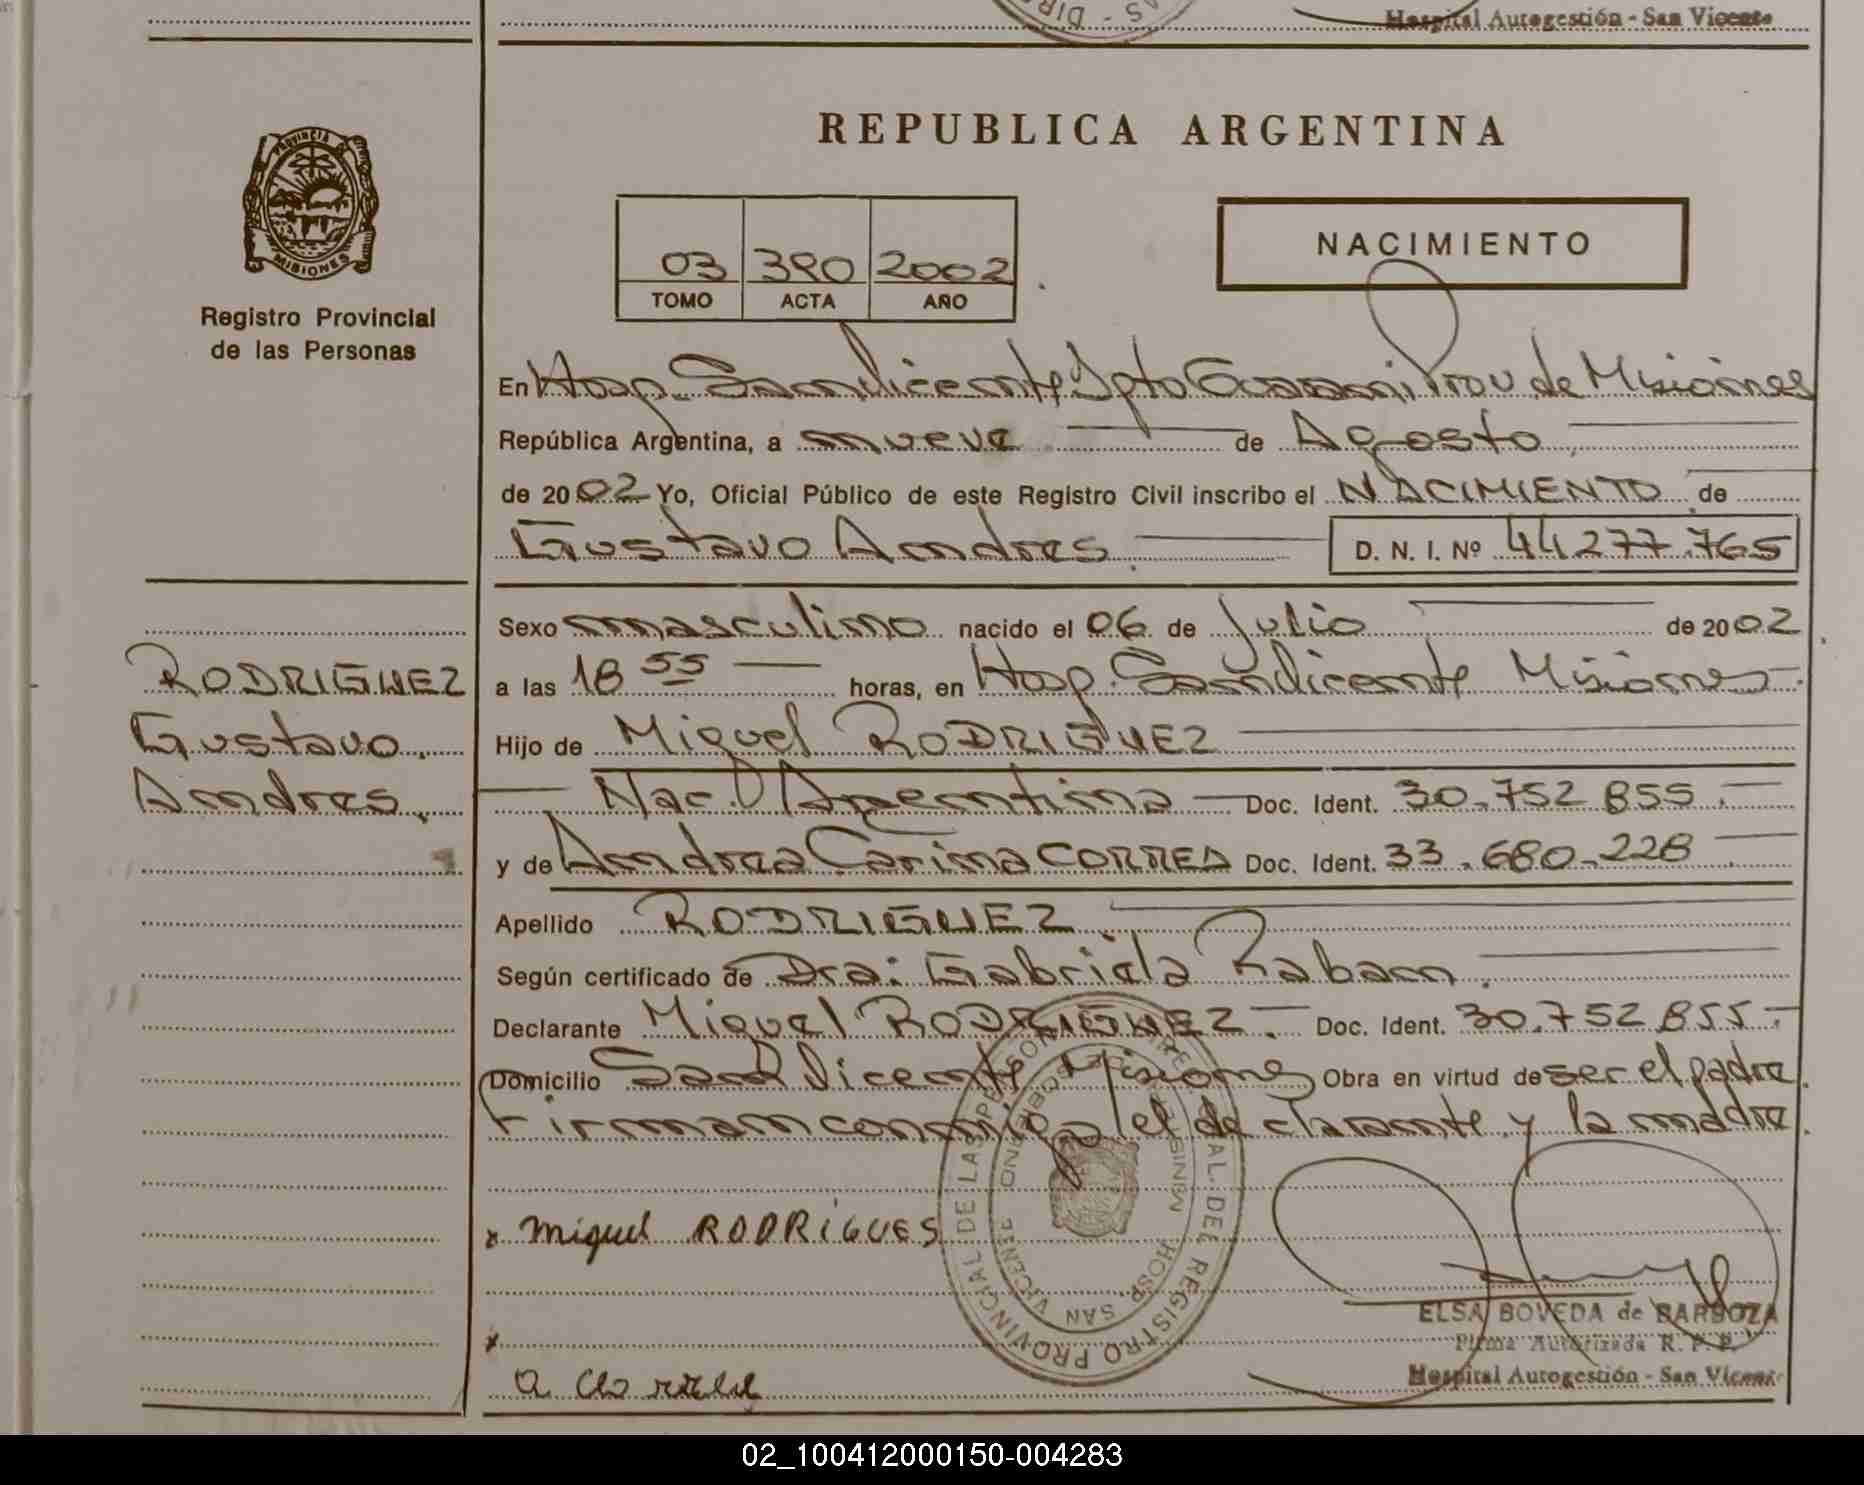 Hospital Autogestión - San Vicente
REPUBLICA ARGENTINA
PROVINCIA DE
MISIONES
Registro Provincial
de las Personas
03 390 2002
TOMO ACTA AÑO
NACIMIENTO
En Hosp. San Vicente Dpto Guarani Prov de Misiones
República Argentina, a nueve de Agosto
de 2002 Yo, Oficial Público de este Registro Civil inscribo el NACIMIENTO de
Gustavo Andres. D. N. I. Nº 44277.765
RODRIGUEZ
Gustavo
Andres.
Sexo masculino nacido el 06 de Julio de 2002
a las 18 55 horas, en Hosp. San Vicente Misiones
Hijo de Miguel RODRIGUEZ
Nac. Argentina Doc. Ident. 30.752 855
y de Andrea Carina CORREA Doc. Ident. 33.680.228
Apellido RODRIGUEZ
Según certificado de Dra: Gabriela Raban
Declarante Miguel RODRIGUEZ. Doc. Ident. 30.752 855
Domicilio San Vicente Misiones Obra en virtud de ser el padre.
Firman conmigo el declarante y la madre.
x Miguel RODRiGUES
x
ELSA BOVEDA de BARBOZA
Firma Autorizada R. P. P.
Hospital Autogestión - San Vicente
REGISTRO PROVINCIAL DE LAS PERSONAS
HOSP. SAN VICENTE
02_100412000150-004283